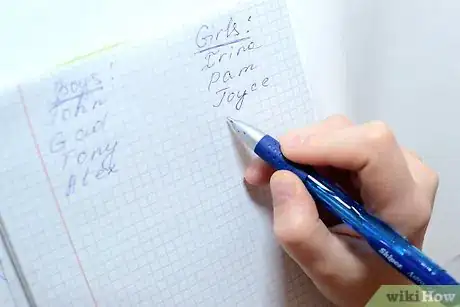 Boys:
John
Gad
Tony
Alex
Girls:
Irina
Pam
Joyce
wikiHow